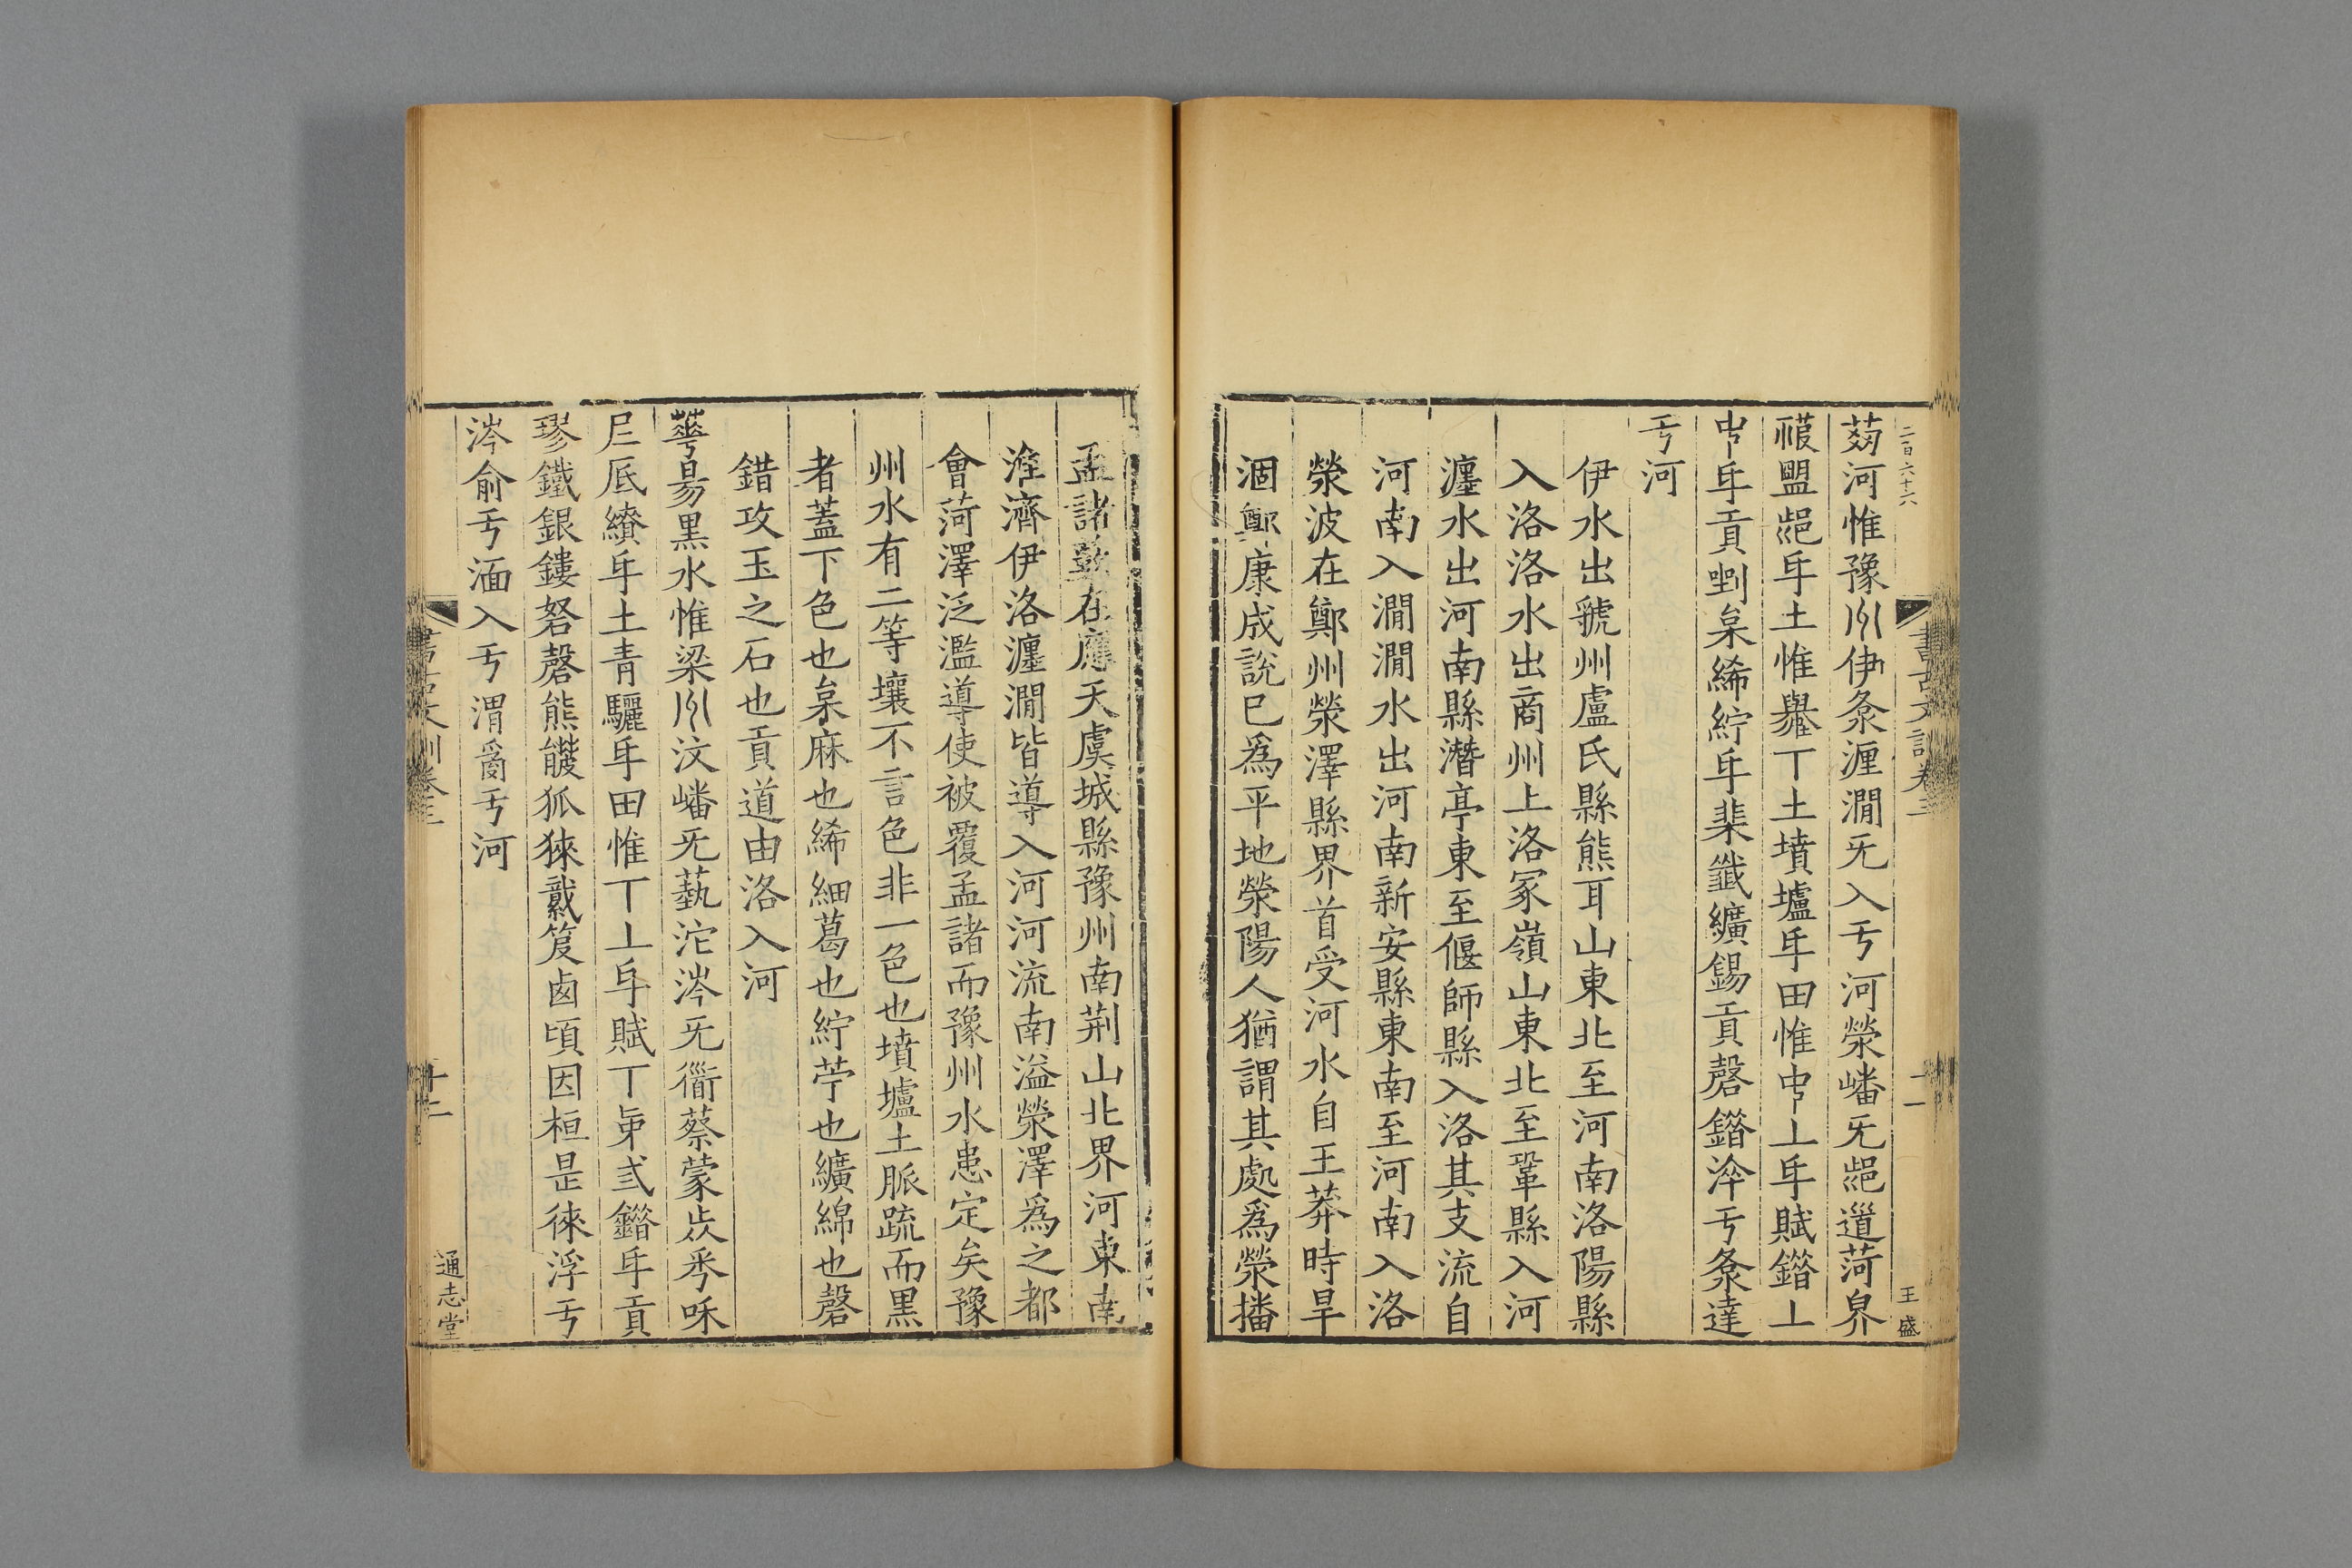 二百六十六
書古文訓卷三
十一
王盛
𦮼河惟豫𠛎伊洜湹㵎旡入亐河滎嶓旡𨞜噵菏𣶒
䙋盟𨞜𠂹土惟𡔞丅土墳壚𠂹田惟𠁩丄𠂹賦鐕丄
𠁩𠂹貢㓼枲絺紵𠂹棐纎纊錫貢磬鐕浮亐洜達
亐河
伊水出虢州盧氏縣熊耳山東北至河南洛陽縣
入洛洛水出商州上洛冢嶺山東北至鞏縣入河
瀍水出河南縣潛亭東至偃師縣入洛其支流自
河南入澗澗水出河南新安縣東南至河南入洛
滎波在鄭州滎澤縣界首受河水自王莽時旱
涸鄭康成說已爲平地滎陽人猶謂其處爲滎播
孟諸藪在應天虞城縣豫州南荆山北界河東南
淮濟伊洛瀍澗皆導入河河流南溢滎澤爲之都
會菏澤泛濫導使被覆孟諸而豫州水患定矣豫
州水有二等壤不言色非一色也墳壚土脈疏而黑
者蓋下色也枲麻也絺細葛也紵苧也纊綿也磬
錯攻玉之石也貢道由洛入河
蕚昜黒水惟梁𠛎汶嶓旡蓺沱涔旡衜蔡蒙㳄𥝩咊
𡰥厎績𠂹土青驪𠂹田惟丅丄𠂹賦丅𠂖弎鐕𠂹貢
璆鐵銀鏤砮磬熊羆狐猍𦇧笈鹵頃因桓昰徠浮亐
涔俞亐湎入亐渭𤔔亐河
書古文訓卷三
十二
通志堂